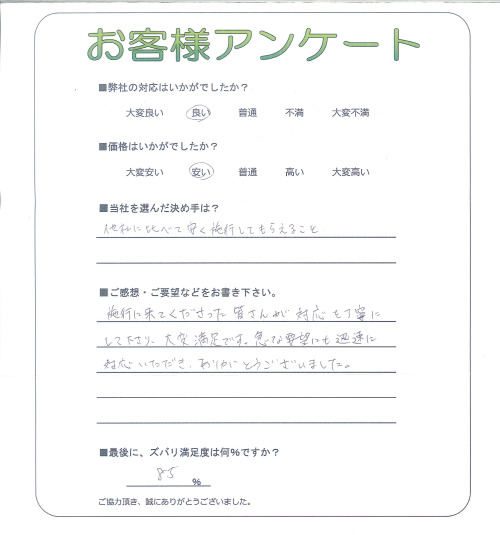 お客様アンケート
■弊社の対応はいかがでしたか？
大変良い 良い 普通 不満 大変不満
■価格はいかがでしたか？
大変安い 安い 普通 高い 大変高い
■当社を選んだ決め手は？
他社に比べて安く施行してもらえること
■ご感想・ご要望などをお書き下さい。
施行に来てくださった皆さんが対応も丁寧に
して下さり、大変満足です。急な要望にも迅速に
対応いただき、ありがとうございました。
■最後に、ズバリ満足度は何%ですか？
85 %
ご協力頂き、誠にありがとうございました。